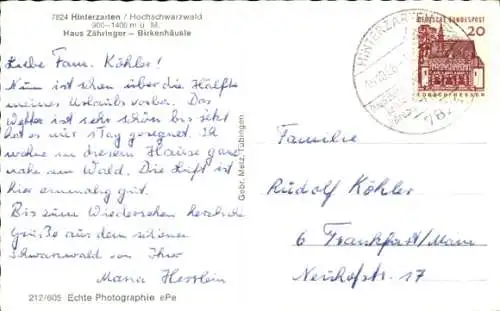 7824 Hinterzarten / Hochschwarzwald
900-1400 m ü. M.
Haus Zähringer – Birkenhäusle
Liebe Fam. Köhler!
Nun ist schon über die Hälfte
meines Urlaubs vorbei. Das
Wetter ist sehr schön bis jetzt
hat es nur 1 Tag geregnet. Ich
wohne in diesem Hause ganz
nahe am Wald. Die Luft ist
hier einmalig gut.
Bis zum Wiedersehen herzliche
Grüße aus dem schönen
Schwarzwald von Ihrer
Maria
212/605 Echte Photographie ePe
Gebr. Metz, Tübingen
HINTERZARTEN
782
DEUTSCHE BUNDESPOST
20
LORSCH/HESSEN
Familie
Rudolf Köhler
6 Frankfurt/Main
Neuhofstr. 17